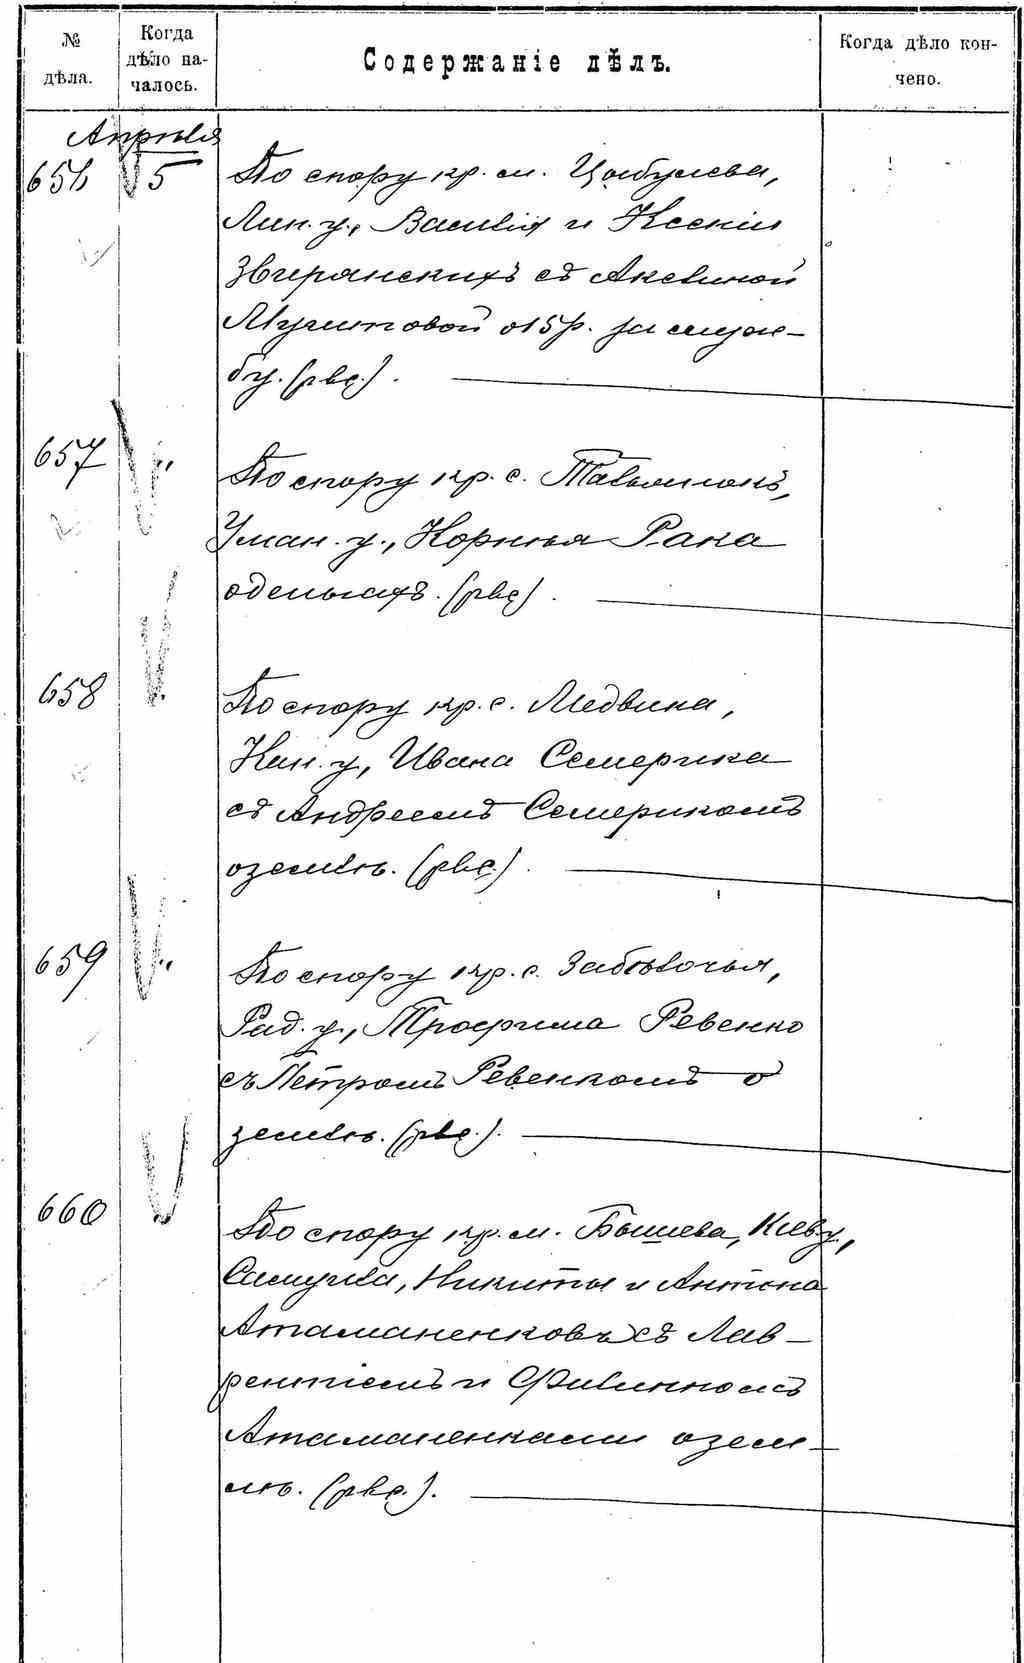 № дѣла.
Когда дѣло на-
чалось.
Содержаніе дѣлъ.
Когда дѣло кон-
чено.
Апрѣля
656 5 По спору кр. м. Цыбулева,
Лип. у., Василія и Ксеніи
Звѣрянскихъ съ Аксиньей
о 15 р. за служ-
бу. (рвс.).
657 " По спору кр. с. Тальянокъ,
Уман. у., Корнѣя Рака
о деньгахъ. (рвс.).
658 " По спору кр. с. Медвина,
Кан. у., Ивана Семерика
съ Андреемъ Семерикомъ
о землѣ. (рвс.).
659 " По спору кр. с. Забѣлочья,
Рад. у., Трофима Ревенко
съ Петромъ Ревенкомъ о
землѣ. (рвс.).
660 " По спору кр. м. Бышева, Кіев. у.,
Самуила, Никиты и Антона
Атаманенковъ съ Лав-
рентіемъ и Филиппомъ
Атаманенками о зем-
лѣ. (рвс.).